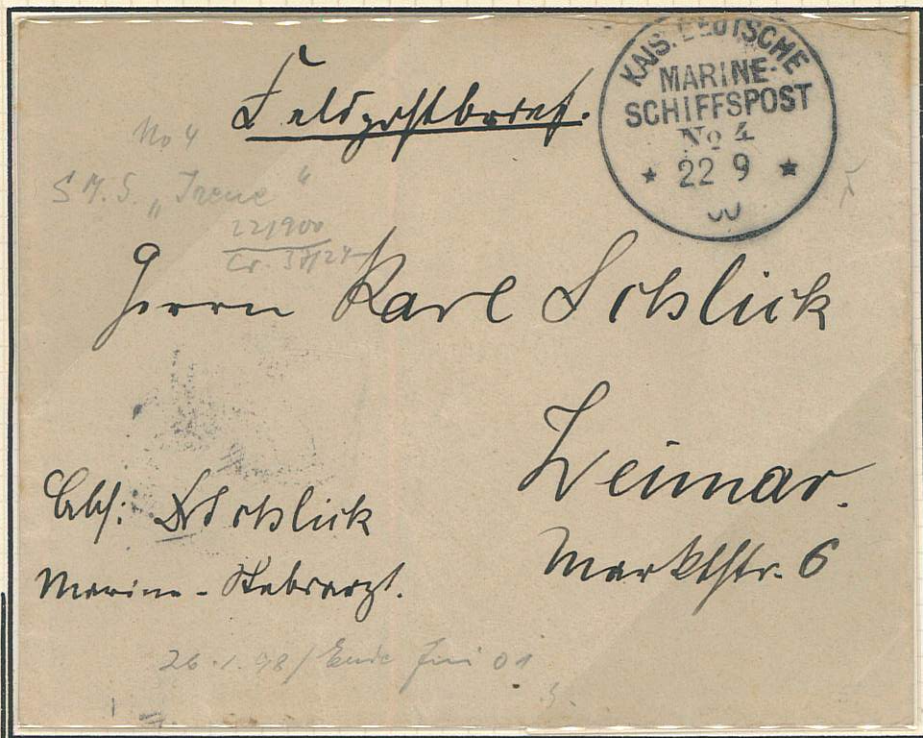 Feldpostbrief.
KAIS. DEUTSCHE
MARINE-
SCHIFFSPOST
No 4
* 22 9 *
00
No 4
S.M.S. „Irene“
22/900
Herrn Karl Schlick
Weimar.
Marktstr. 6
Abs: Dr Schlick
Marine-Stabsarzt.
26.1.98/Ende Juni 01